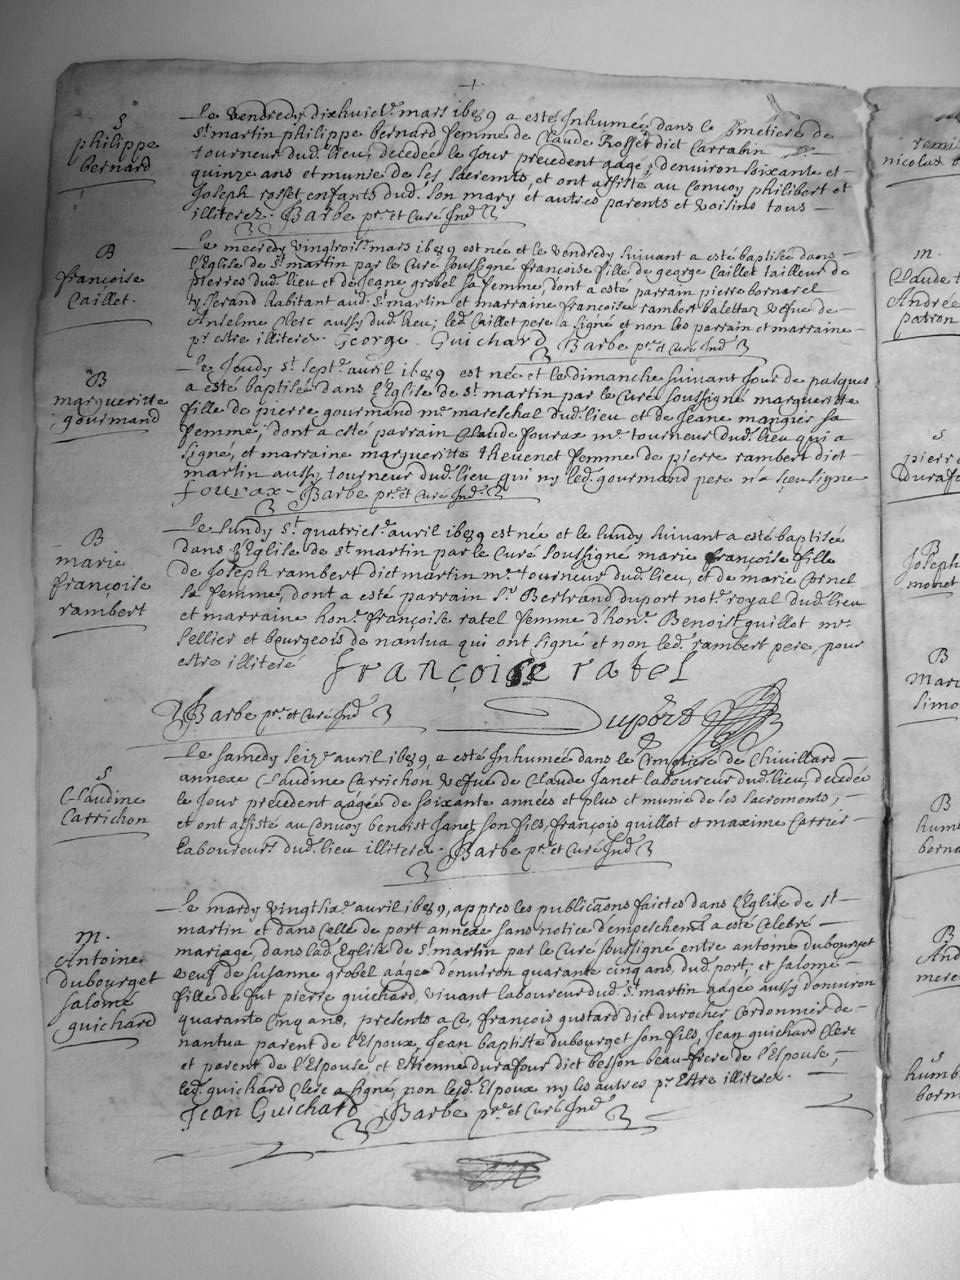 S
philippe
bernard
Le Vendredy dixhuict.e mars 1689 a esté Inhumée dans le Cimetiere de
St martin philippe bernard femme de Claude Rosset dict Carrabin
tourneur dud. lieu, decedée le Jour precedent aagée denuiron soixante et
quinze ans et munie de ses sacremts, et ont assisté au Conuoy philibert et
Joseph rosset enfants dud. son mary et autres parents et voisins tous
illiterez. Barbe pre. et Curé Ind.
B
françoise
Caillet.
Le mecredy vingtrois.e mars 1689 est née et le vendredy suiuant a esté baptisée dans
l'Eglise de St martin par le Curé soussigné françoise fille de george Caillet tailleur de
pierres dud. lieu et de grobel sa femme, dont a esté parrain pierre
habitant aud. St martin et marraine françoise rambert vefue de
Anselme Clerc aussy dud. lieu; led. Caillet pere a signé et non les parrain et marraine
pr estre illiterez. George. Guichard Barbe pre. et Curé Ind.
B
margueritte
gourmand
Le Jeudy st sept.e auril 1689 est née et le dimanche suiuant Jour de pasques
a esté baptisée dans l'Eglise de St martin par le Curé soussigné margueritte
fille de pierre gourmand me. mareschal dud. lieu et de Jeane sa
femme; dont a esté parrain Claude fourax me. tourneur dud. lieu qui a
signé, et marraine margueritte theuenet femme de pierre rambert dict
martin aussy tourneur dud. lieu qui ny led. gourmand pere n'a sçeu signé
fourax - Barbe pre. et Curé Ind.
B
marie
françoise
rambert
Le lundy st quatries.e auril 1689 est née et le lundy suiuant a esté baptisée
dans l'Eglise de St martin par le Curé soussigné marie françoise fille
de Joseph rambert dict martin me. tourneur dud. lieu, et de marie Cornel
sa femme, dont a esté parrain Sr. Bertrand duport not.e royal dud. lieu
et marraine hon.e françoise ratel femme d'hon.e Benoist guillot me.
sellier et bourgeois de nantua qui ont signé et non led. rambert pere, pour
estre illiteré françoise ratel
Barbe pre. et Curé Ind. Duport
S
Claudine
Carrichon
Le samedy seiz.e auril 1689, a esté Inhumée dans le Cimetiere de Chiuillard
annexe Claudine Carrichon vefue de Claude Janet laboureur dud. lieu, decedée
le Jour precedent aagée de soixante années et plus et munie de ses sacrements;
et ont assisté au Conuoy benoist Janet son fils, françois guillot et maxime Carrier
laboureurs dud. lieu illiterez. Barbe pre. et Curé Ind.
m.
Antoine
dubourget
salomé
guichard
Le mardy vingtsix.e auril 1689, appres les publicãons faictes dans l'Eglise de St
martin et dans Celle de port annexe sans notice d'empeschem.t a esté Celebré
mariage, dans lad. Eglise de St martin par le Curé soussigné entre antoine dubourget
veuf de susanne grobel aagé d'enuiron quarante cinq ans, dud. port; et salomé
fille de fut pierre guichard, viuant laboureur dud. St martin aagée aussy denuiron
quarante Cinq ans, presents a Ce, françois gustard dict durocher Cordonnier de
nantua parent de l'Espoux, Jean baptiste dubourget son fils, Jean guichard Clerc
et parent de l'Espouse et Estienne durafour dict besson beau-frere de l'Espouse;
led. guichard Clerc a signé, non led. Espoux ny les autres pr Estre illiterez.
Jean Guichard Barbe pre. et Curé Ind.
nicolas
m.
Claude
Andrée
patron
S
pierre
Duraf
B
Joseph
monet
B
Mari
simo
B
humb
berna
B
And
mere
S
humb
berna